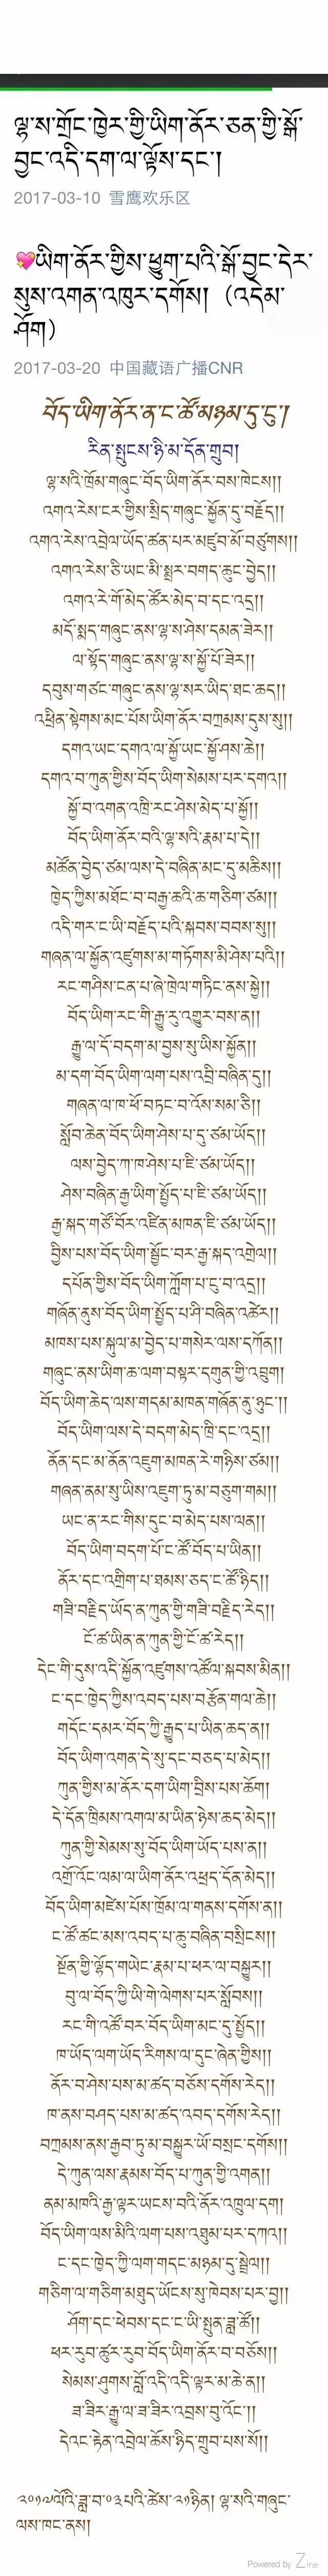 ལྷ་ས་གྲོང་ཁྱེར་གྱི་ཡིག་ནོར་ཅན་གྱི་སྒོ་
བྱང་འདི་དག་ལ་ལྟོས་དང་།
2017-03-10 雪鹰欢乐区
💖ཡིག་ནོར་གྱིས་ཕྱུག་པའི་སྒོ་བྱང་དེར་
སུས་འགན་འཁུར་དགོས། (འདེམ་
ཤོག)
2017-03-20 中国藏语广播CNR
བོད་ཡིག་ནོར་ན་ང་ཚོ་མཉམ་དུ་ངུ་།
རིན་སྤུངས་ཉི་མ་དོན་གྲུབ།
ལྷ་སའི་ཁྲོམ་གཞུང་བོད་ཡིག་ནོར་བས་ཁེངས།།
འགའ་རེས་ངར་གྱིས་སྲིད་གཞུང་སྐྱོན་དུ་བརྗོད།།
འགའ་རེས་འབྲེལ་ཡོད་ཚན་པར་མཛུབ་མོ་བཙུགས།།
འགའ་རེས་ཅི་ཡང་མི་སྨྲར་བགད་ཆུང་བྱེད།།
འགའ་རེ་གོ་མེད་ཚོར་མེད་བ་དང་འདྲ།།
མདོ་སྨད་གཞུང་ནས་ལྷ་ས་ཤེས་དམན་ཟེར།།
ལ་སྟོད་གཞུང་ནས་ལྷ་ས་སྐྱོ་པོ་ཟེར།།
དབུས་གཙང་གཞུང་ནས་ལྷ་སར་ཡིད་ཐང་ཆད།།
འཕྲིན་སྟེགས་མང་པོས་ཡིག་ནོར་བཀྲམས་དུས་སུ།།
དགའ་ཡང་དགའ་ལ་སྐྱོ་ཡང་སྐྱོ་ཤས་ཆེ།།
དགའ་བ་ཀུན་གྱིས་བོད་ཡིག་སེམས་པར་དགའ།།
སྐྱོ་བ་འགན་འཁྲི་རང་ཤེས་མེད་པ་སྐྱོ།།
བོད་ཡིག་ནོར་བའི་ལྷ་སའི་རྣམ་པ་དེ།།
མཚོན་བྱེད་ཙམ་ལས་དེ་བཞིན་མང་དུ་མཆིས།།
ཁྱེད་ཀྱིས་མཐོང་བ་བརྒྱ་ཆའི་ཆ་གཅིག་ཙམ།།
འདི་གར་ང་ཡི་བརྗོད་པའི་སྐབས་བབས་སུ།།
གཞན་ལ་སྐྱོན་འཛུགས་མ་གཏོགས་མི་ཤེས་པའི།།
རང་གཤིས་ངན་པ་ཞེ་ཁྲེལ་གཏིང་ནས་སྐྱེ།།
བོད་ཡིག་རང་གི་རྒྱུ་རུ་འགྱུར་བས་ན།།
རྒྱུ་ལ་དོ་བདག་མ་བྱས་སུ་ཡིས་སྐྱོན།།
མ་དག་བོད་ཡིག་ལག་པས་འབྲི་བཞིན་དུ།།
གཞན་ལ་ཁ་ཕོ་བཏང་བ་འོས་སམ་ཅི།།
སློབ་ཆེན་བོད་ཡིག་ཤེས་པ་དུ་ཙམ་ཡོད།།
ལས་བྱེད་ཀ་ཁ་ཤེས་པ་ཇི་ཙམ་ཡོད།།
ཤེས་བཞིན་རྒྱ་ཡིག་སྤྱོད་པ་ཇི་ཙམ་ཡོད།།
རྒྱ་སྐད་གཙོ་བོར་འཛིན་མཁན་ཇི་ཙམ་ཡོད།།
བྱིས་པས་བོད་ཡིག་སྦྱོང་བར་རྒྱ་སྐད་འགྲེལ།།
དཔོན་གྱིས་བོད་ཡིག་ཀློག་པ་ངུ་བ་འདྲ།།
གཞོན་ནུས་བོད་ཡིག་སྤྱོད་པ་ཤི་བཞིན་འཚེར།།
མཁས་པས་སྐུལ་མ་བྱེད་པ་གསེར་ལས་དཀོན།།
གཞུང་ནས་ཡིག་ཆ་ལག་བསྟར་དགུན་གྱི་འབྲུག།
བོད་ཡིག་ཆེད་ལས་གདམ་མཁན་གཞོན་ནུ་ཉུང་།།
བོད་ཡིག་ལས་དེ་བདག་མེད་ཁྱི་དང་འདྲ།།
ནོན་དང་མ་ནོན་འཇུག་མཁན་རེ་གཉིས་ཙམ།།
གཞན་ནས་སུ་ཡིས་འཇུག་ཏུ་མ་བཅུག་གམ།།
ཡང་ན་རང་གིས་དུང་བ་མེད་པས་ལན།།
བོད་ཡིག་བདག་པོ་ང་ཚོ་བོད་པ་ཡིན།།
ནོར་དང་འགྲིག་པ་ཐམས་ཅད་ང་ཚོ་ཉིད།།
གཟི་བརྗིད་ཡོད་ན་ཀུན་གྱི་གཟི་བརྗིད་རེད།།
ངོ་ཚ་ཡིན་ན་ཀུན་གྱི་ངོ་ཚ་རེད།།
དེང་གི་དུས་འདི་སྐྱོན་འཛུགས་འཚོལ་སྐབས་མིན།།
ང་དང་ཁྱེད་ཀྱིས་འབད་པས་བརྩོན་གལ་ཆེ།།
གདོང་དམར་བོད་ཀྱི་རྒྱུད་པ་ཡིན་ཆད་ན།།
བོད་ཡིག་འགན་དེ་སུ་དང་བཅད་པ་མེད།།
ཀུན་གྱིས་མ་ནོར་དག་ཡིག་བྲིས་པས་ཆོག།
དེ་དོན་ཁྲིམས་འགལ་མ་ཡིན་ཉེས་ཆད་མེད།།
ཀུན་གྱི་སེམས་སུ་བོད་ཡིག་ཡོད་པས་ན།།
འགྲོ་འོང་ལམ་ལ་ཡིག་ནོར་འཕྲད་དོན་མེད།།
བོད་ཡིག་མཛེས་པོས་ཁྲོམ་ལ་གནས་དགོས་ན།།
ང་ཚོ་ཚང་མས་འབད་པ་ཆུ་བཞིན་བསྲིངས།།
སྔོན་གྱི་ལྷོད་གཡེང་རྣམ་པ་ཕར་ལ་བསྐྱུར།།
བུ་ལ་བོད་ཀྱི་ཡི་གེ་ལེགས་པར་སློབས།།
རང་གི་འཚོ་བར་བོད་ཡིག་མང་དུ་སྤྱོད།།
ཁ་ཡོད་ལག་ཡོད་རིགས་ལ་དུང་ཞེན་གྱིས།།
ནོར་བ་ཤེས་པས་མ་ཚད་བཅོས་དགོས་རེད།།
ཁ་ནས་བཤད་པས་མ་ཚད་འབད་དགོས་རེད།།
བཀྲམས་ནས་རྒྱབ་ཏུ་མ་བསྐྱུར་ཡོ་བསྲང་དགོས།།
དེ་ཀུན་ལས་རྣམས་བོད་པ་ཀུན་གྱི་འགན།།
ནམ་མཁའི་རྒྱ་ལྟར་ཡངས་བའི་ནོར་འཁྲུལ་དག།
བོད་ཡིག་ལས་མིའི་ལག་པས་འཐུམ་པར་དཀའ།།
ང་དང་ཁྱེད་ཀྱི་ལག་གདང་མཉམ་དུ་སྦྲེལ།།
གཅིག་ལ་གཅིག་མཐུད་ཡོངས་སུ་ཁེབས་པར་བྱ།།
ཤོག་དང་ཕེབས་དང་ང་ཡི་སྤུན་ཟླ་ཚོ།།
ཕར་རུབ་ཚུར་རུབ་བོད་ཡིག་ནོར་བ་བཅོས།།
སེམས་ཤུགས་བློ་འདི་འདི་ལྟར་མ་ཆེ་ན།།
ཟ་ཟིར་རྒྱུ་ལ་ཟ་ཟིར་འབྲས་བུ་འོང་།།
དེའང་རྟེན་འབྲེལ་ཆོས་ཉིད་གྲུབ་པས་སོ།།
༢༠༡༧ལོའི་ཟླ་བ་༠༣པའི་ཚེས་༢༡ཉིན། ལྷ་སའི་གཞུང་
ལས་ཁང་ནས།
Powered by Zine